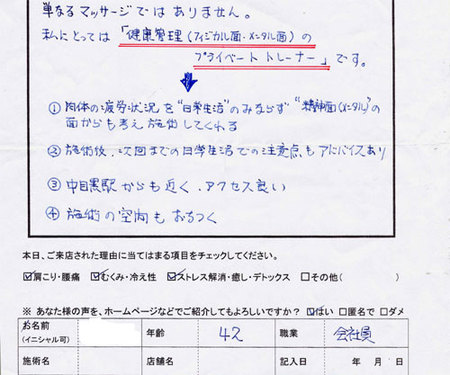 単なるマッサージではありません。
私にとっては「健康管理(フィジカル面・メンタル面)の
プライベートトレーナー」です。
① 肉体の疲労状況を"日常生活"のみならず"精神面(メンタル)"の
面からも考え施術してくれる
② 施術後、次回までの日常生活での注意点もアドバイスあり
③ 中目黒駅からも近く、アクセス良い
④ 施術の空間もおちつく
本日、ご来店された理由に当てはまる項目をチェックしてください。
☑肩こり・腰痛 ☑むくみ・冷え性 ☑ストレス解消・癒し・デトックス □その他( )
※ あなた様の声を、ホームページなどでご紹介してもよろしいですか? ☑はい □匿名で □ダメ
お名前 (イニシャル可) 年齢 42 職業 会社員
施術名 店舗名 記入日 年 月 日